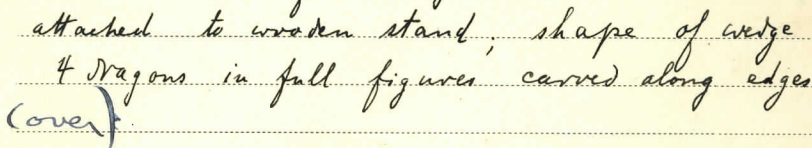 attached to wooden stand; shape of wedge
4 dragons in full figures carved along edges
(over)